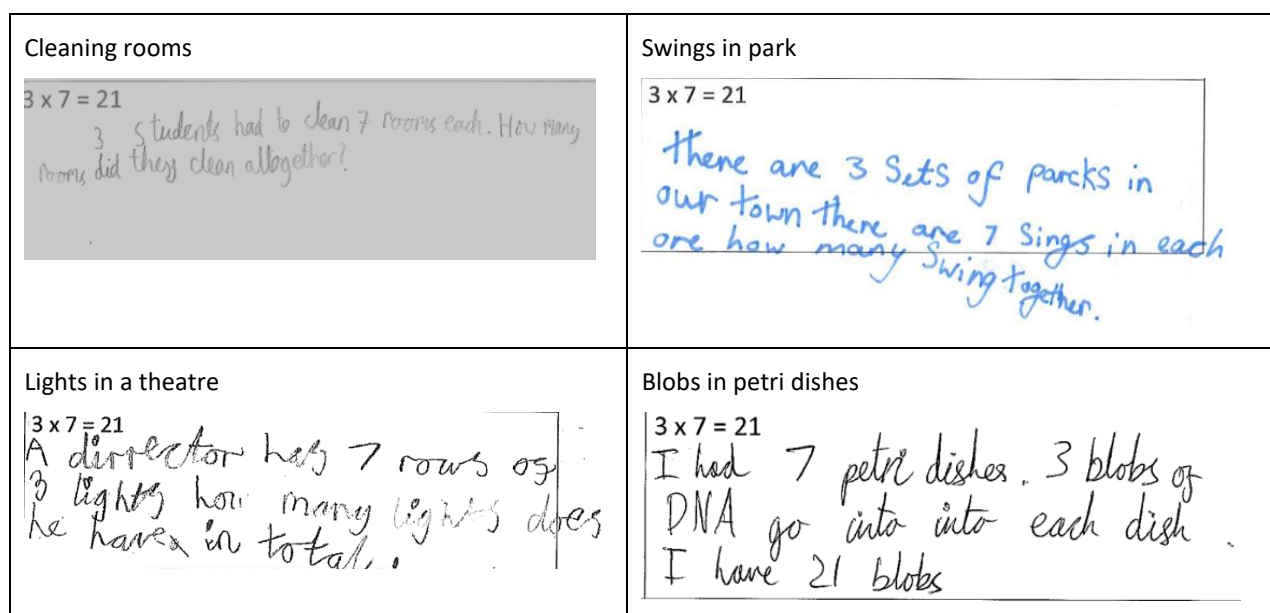 Cleaning rooms
3 x 7 = 21
3 Students had to clean 7 rooms each. How many
rooms did they clean altogether?
Swings in park
3 x 7 = 21
there are 3 Sets of parcks in
our town there are 7 Sings in each
one how many Swing together.
Lights in a theatre
3 x 7 = 21
A dirrector has 7 rows of
3 lights how many lights does
he have in total.
Blobs in petri dishes
3 x 7 = 21
I had 7 petri dishes. 3 blobs of
DNA go into into each dish.
I have 21 blobs